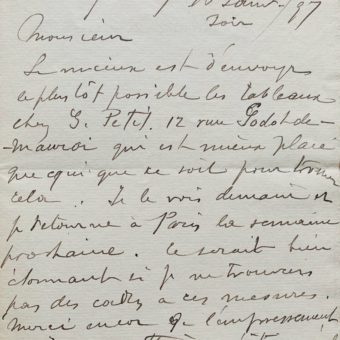 97
soir
Monsieur
Le mieux est d'envoyer
le plustôt possible les tableaux
chez G. Petit. 12 rue Godot-de-
-Mauroi qui est mieux placé
que qui que ce soit pour trouver
cela. Je le vois demain et
je retourne à Paris la semaine
prochaine. Ce serait bien
étonnant si je ne trouvais
pas des cadres à ces mesures.
Merci encore de l'empressement